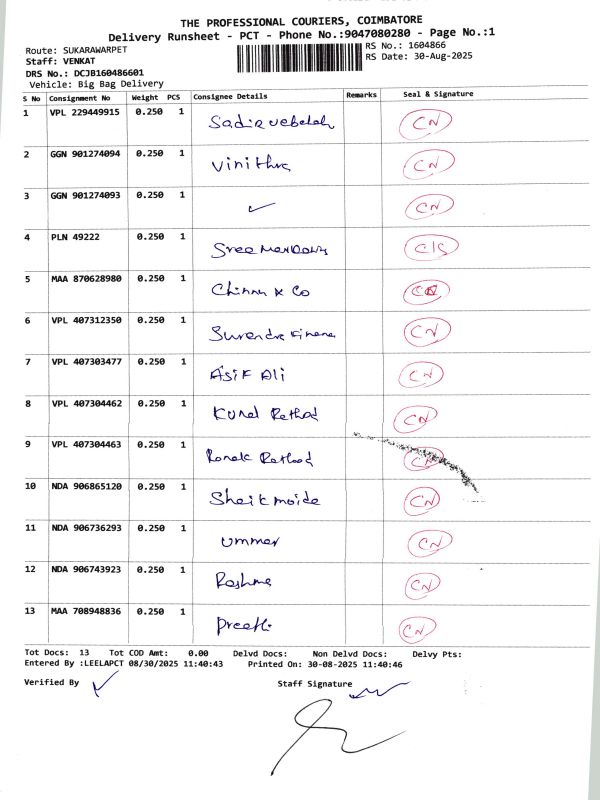 THE PROFESSIONAL COURIERS, COIMBATORE
Delivery Runsheet - PCT - Phone No.:9047080280 - Page No.:1
Route: SUKARAWARPET
RS No.: 1604866
Staff: VENKAT
RS Date: 30-Aug-2025
DRS No.: DCJB160486601
Vehicle: Big Bag Delivery
S No Consignment No Weight PCS Consignee Details Remarks Seal & Signature
1 VPL 229449915 0.250 1 CN
2 GGN 901274094 0.250 1 Vinithra CN
3 GGN 901274093 0.250 1 ✓ CN
4 PLN 49222 0.250 1 Sree
5 MAA 870628980 0.250 1 & Co
6 VPL 407312350 0.250 1 Surendra CN
7 VPL 407303477 0.250 1 Asif Ali CN
8 VPL 407304462 0.250 1 Kunal Rathod CN
9 VPL 407304463 0.250 1 Ronak Rathod CN
10 NDA 906865120 0.250 1 Sheik CN
11 NDA 906736293 0.250 1 ummer CN
12 NDA 906743923 0.250 1 CN
13 MAA 708948836 0.250 1 Preethi CN
Tot Docs: 13 Tot COD Amt: 0.00 Delvd Docs: Non Delvd Docs: Delvy Pts:
Entered By :LEELAPCT 08/30/2025 11:40:43 Printed On: 30-08-2025 11:40:46
Verified By
Staff Signature